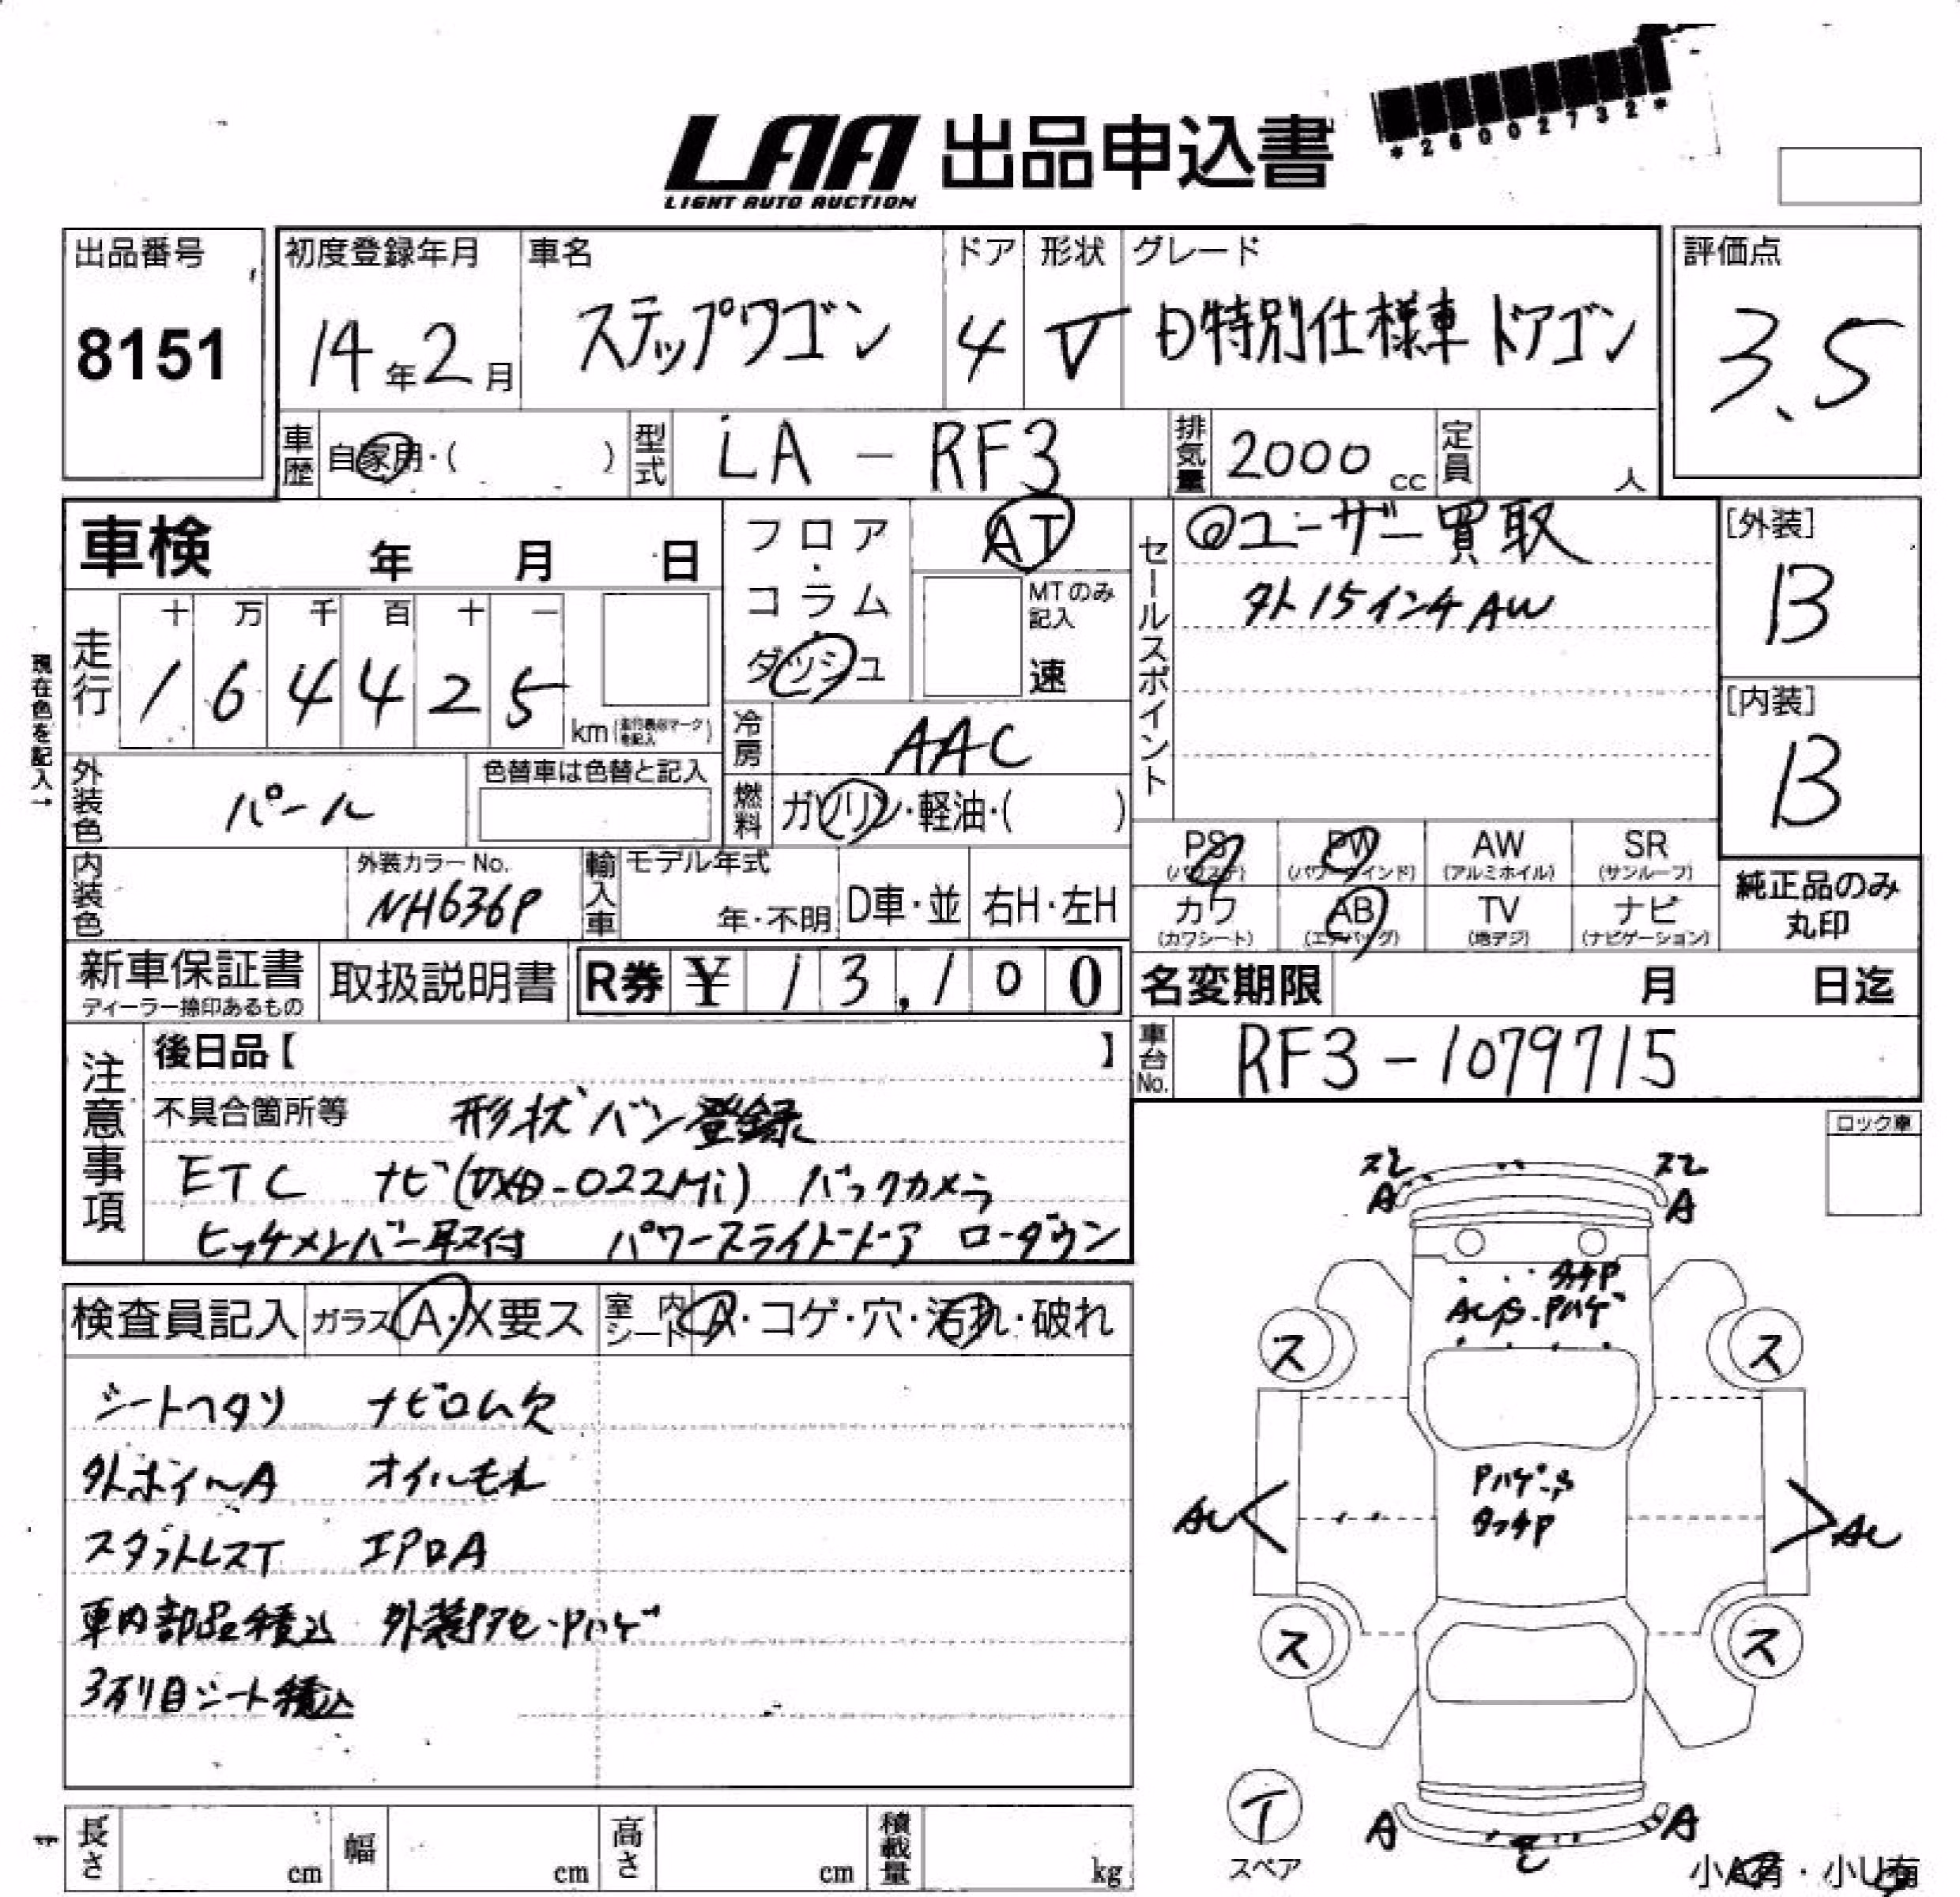 LAA 出品申込書
LIGHT AUTO AUCTION
*26002732*
出品番号
8151
初度登録年月
14年2月
車名
ステップワゴン
ドア
4
形状
V
グレード
D特別仕様車 ドアゴン
評価点
3.5
車歴
自家用・( )
型式
LA - RF3
排気量
2000cc
定員
人
車検 年 月 日
フロア・コラム・ダッシュ
AT
MTのみ記入
速
セールスポイント
◎ユーザー買取
外15インチAW
[外装]
B
[内装]
B
現在色を記入→
走行
十 万 千 百 十 一
1 6 4 4 2 5
km
冷房
AAC
外装色
パール
色替車は色替と記入
燃料
ガソリン・軽油・( )
PS (パワステ)
PW (パワーウインド)
AW (アルミホイル)
SR (サンルーフ)
内装色
外装カラーNo.
NH636P
輸入車
モデル年式
年・不明
D車・並
右H・左H
カワ (カワシート)
AB (エアバッグ)
TV (地デジ)
ナビ (ナビゲーション)
純正品のみ
丸印
新車保証書
ディーラー捺印あるもの
取扱説明書
R券 ¥ 13,100
名変期限 月 日迄
車台No.
RF3-1079715
注意事項
後日品【 】
不具合箇所等 形状バン登録
ETC ナビ バックカメラ
ヒッチメンバー取付 パワースライドドア ローダウン
ロック車
検査員記入
ガラス A・X要ス
室内シート A・コゲ・穴・汚れ・破れ
シートヘタリ ナビロム欠
外ホイールA オイルモレ
スタットレスT エアロA
車内部品積込 外装アセ・Pハゲ
3列目シート積込
A
A
タッチP
Pハゲ
ス
ス
Pハゲ
タッチP
AU
AU
ス
ス
T
スペア
A
A
小A有・小U有
長さ cm
幅 cm
高さ cm
積載量 kg